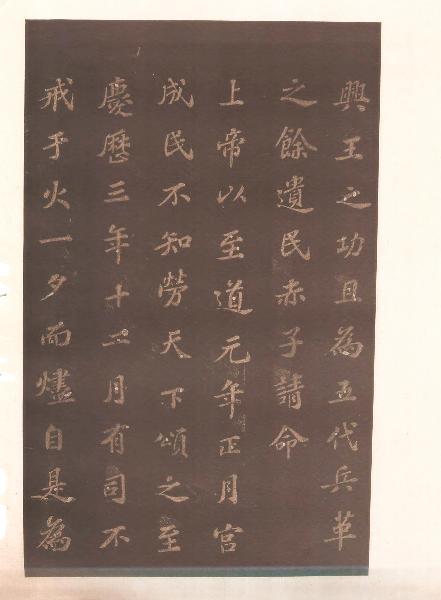 興王之功且為五代兵革
之餘遺民赤子請命
上帝以至道元年正月宮
成民不知勞天下頌之至
慶曆三年十二月有司不
戒于火一夕而燼自是為